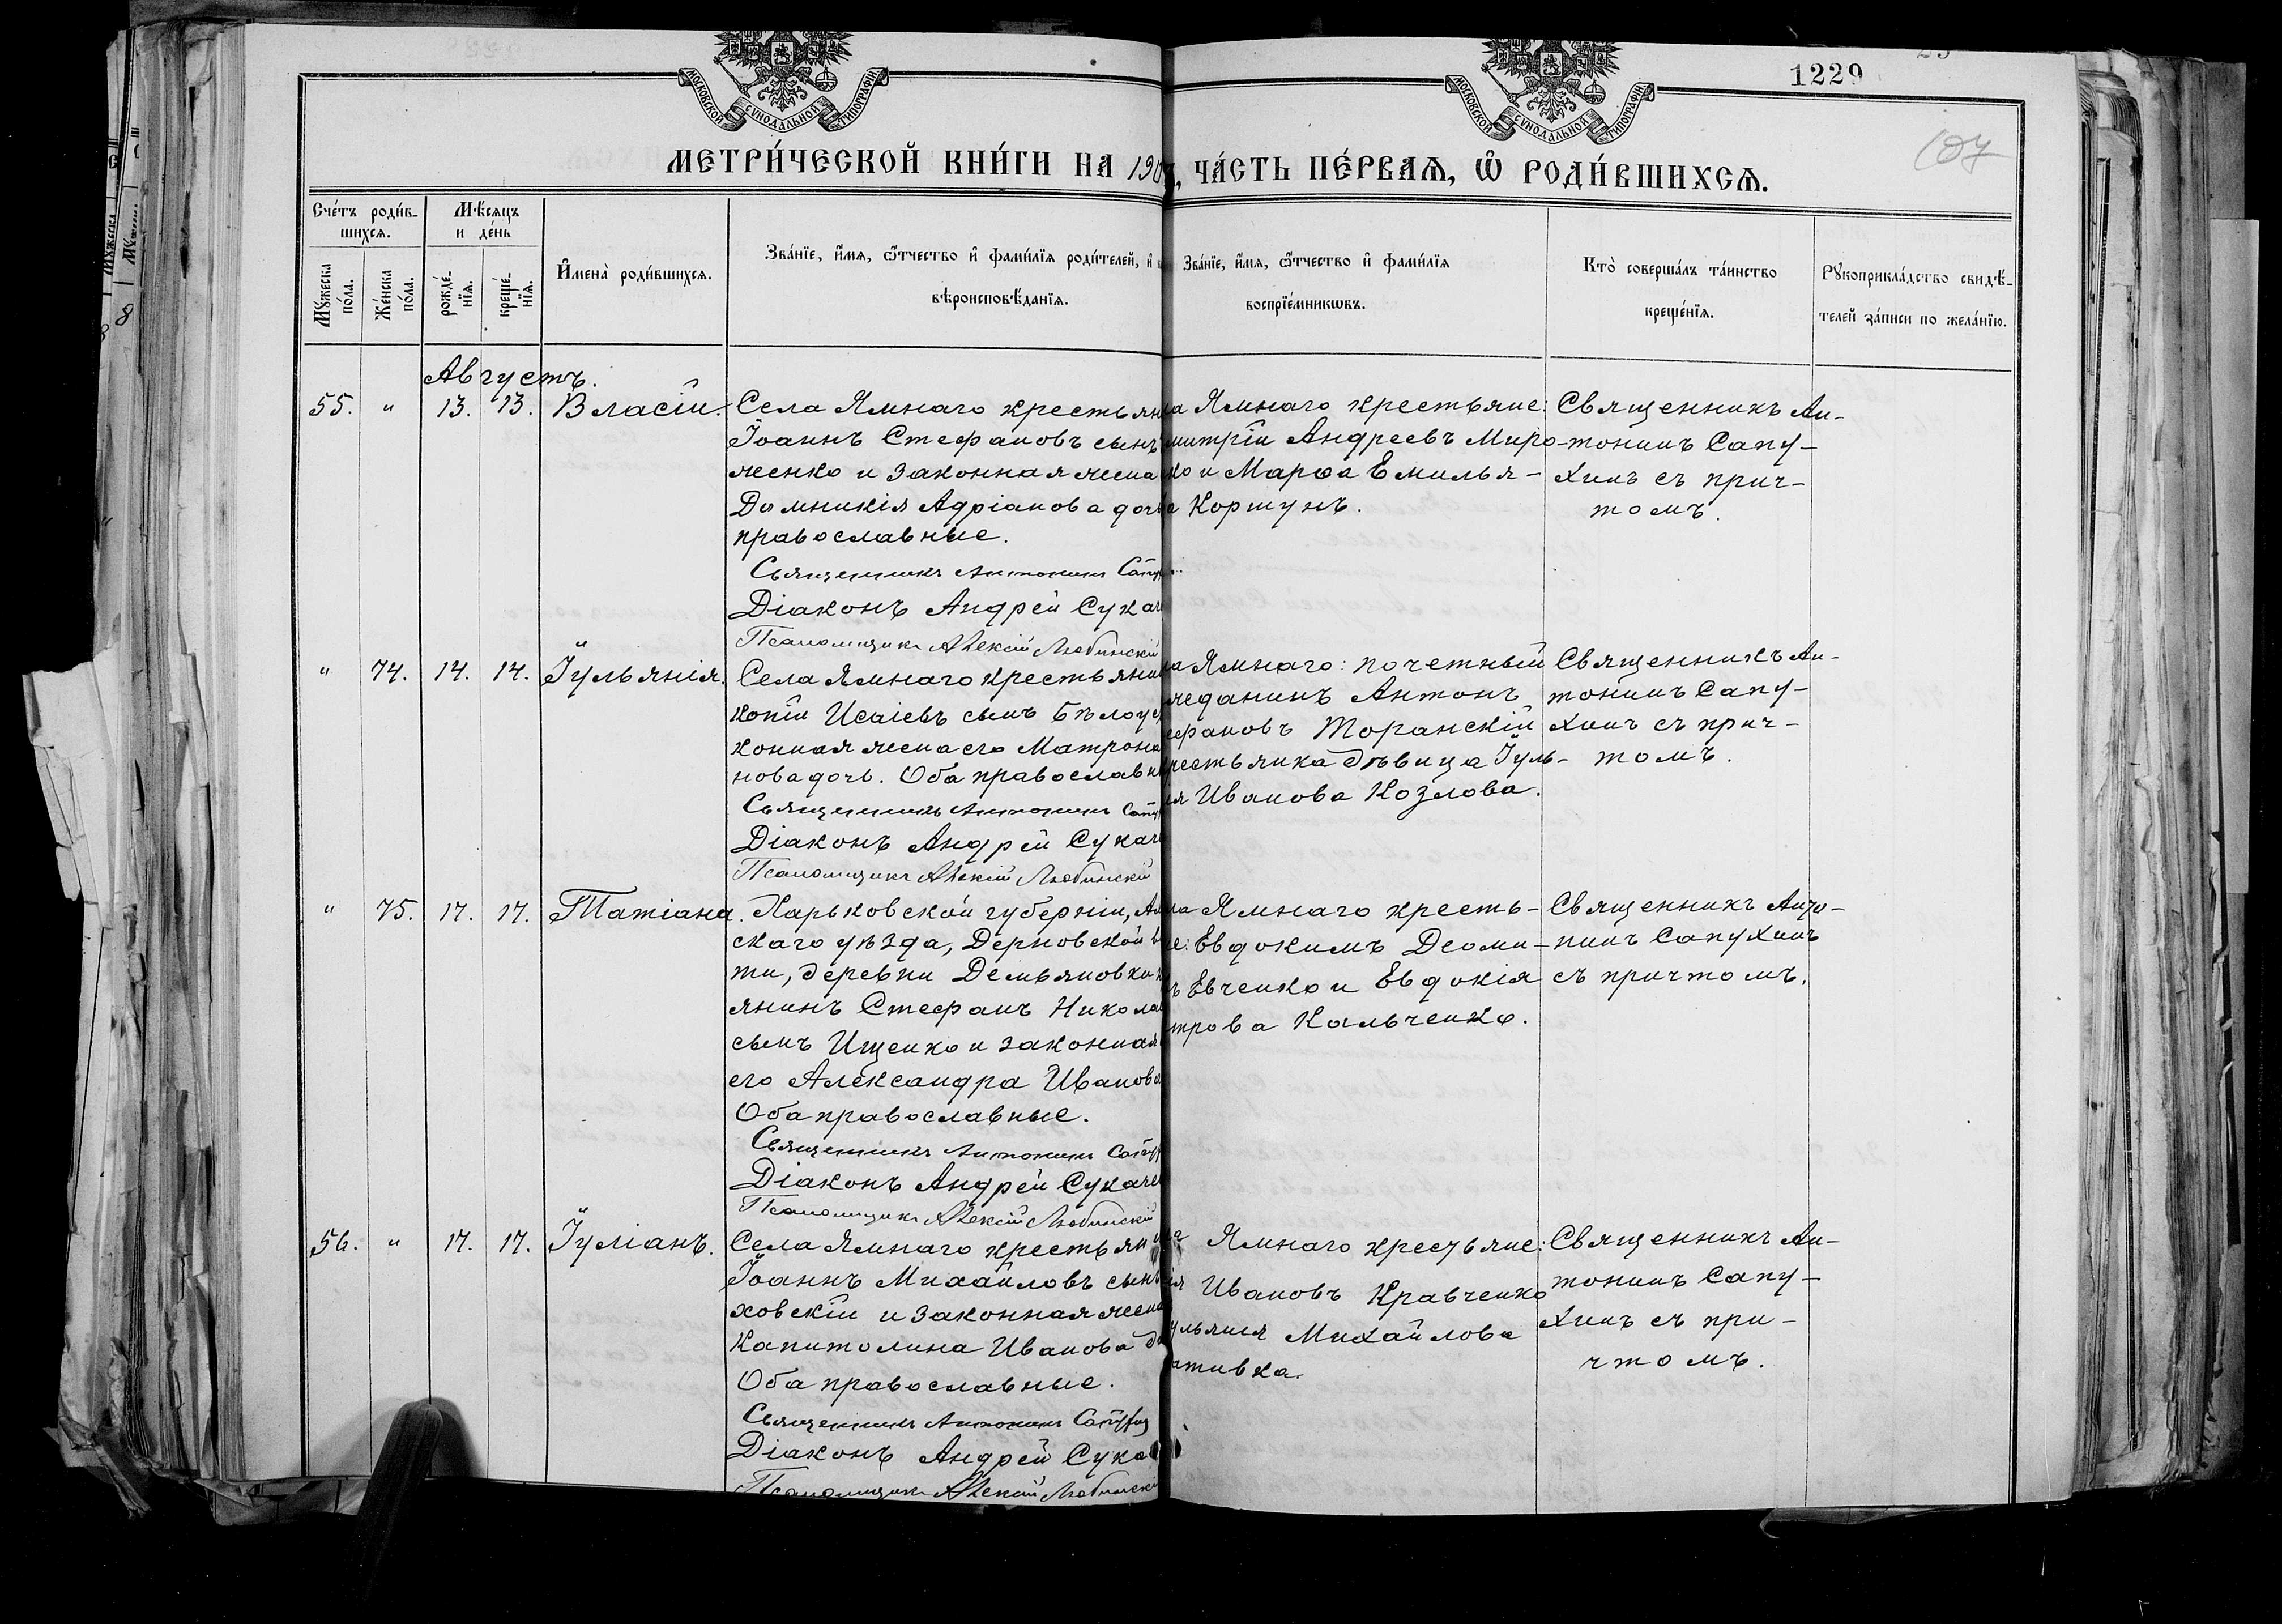 МОСКОВСКОЙ СѴНОДАЛЬНОЙ ТИПОГРАФІИ
МОСКОВСКОЙ СѴНОДАЛЬНОЙ ТИПОГРАФІИ
1229
107
МЕТРИ́ЧЕСКОЙ КНИ́ГИ НА 190
ЧА́СТЬ ПЕ́РВАѦ, Ѡ҆ РОДИ́ВШИХСѦ.
Сче́тъ роди́в-
шихсѧ.
Мѣ́сѧцъ
и де́нь
Мꙋ́жеска
по́ла.
Же́нска
по́ла.
рожде́-
нїѧ.
креще́-
нїѧ.
И҆мена̀ роди́вшихсѧ.
Зва́нїе, и҆́мѧ, ѻ҆́тчество и҆ фами́лїѧ роди́телей, и҆
вѣроисповѣ́данїѧ.
Зва́нїе, и҆́мѧ, ѻ҆́тчество и҆ фами́лїѧ
воспрїе́мникѡвъ.
Кто̀ соверша́лъ та́инство
креще́нїѧ.
Рꙋкоприкла́дство свидѣ́-
телей за́писи по жела́нїю.
Августъ.
55. " 13. 13. Власій.
Села Ямнаго крестьян
Іоаннъ Стефановъ сынъ
женко и законная жена
Домникія Адріанова дочь
православные.
Священникъ Антонинъ Сапу
Діаконъ Андрей Сукач
Псаломщикъ Алексій Любинскій
на Ямнаго крестьяне:
митрій Андреевъ Миро-
ко и Марѳа Емилья-
а Коршунъ.
Священникъ Ан-
тонинъ Сапу-
хинъ съ прич-
томъ.
" 74. 14. 14. Іульянія.
Села Ямнаго крестьянин
копій Исаіевъ сынъ Бѣлоу
конная жена его Матрона
нова дочь. Оба православн
Священникъ Антонинъ Сапу
Діаконъ Андрей Сукач
Псаломщикъ Алексій Любинскій
ла Ямнаго: почетный
жеданинъ Антонъ
ефановъ Торанскій
рестьянка дѣвица Іуль-
ія Иванова Козлова.
Священникъ Ан-
тонинъ Сапу-
хинъ съ прич-
томъ.
" 75. 17. 17. Татіана.
Харьковской губерніи, Ах
скаго уѣзда, Дерновской в
ти, деревни Демьяновки
янинъ Стефанъ Никола
сынъ Ищенко и законная
его Александра Иванова
Оба православные.
Священникъ Антонинъ Сапу
Діаконъ Андрей Сукаче
Псаломщикъ Алексій Любинскій
ла Ямнаго кресть-
не: Евдокимъ Деоми-
ъ Евченко и Евдокія
трова Кальченко.
Священникъ Анто-
нинъ Сапухинъ
съ причтомъ.
56. " 17. 17. Іуліанъ.
Села Ямнаго крестьян
Іоаннъ Михайловъ сынъ
ховскій и законная жена
Капитолина Иванова до
Оба православные.
Священникъ Антонинъ Сапух
Діаконъ Андрей Сука
Псаломщикъ Алексій Любинскій
Ямнаго крестьяне:
ія Ивановъ Кравченко
ульянія Михайлова
ативка.
Священникъ Ан-
тонинъ Сапу-
хинъ съ при-
чтомъ.